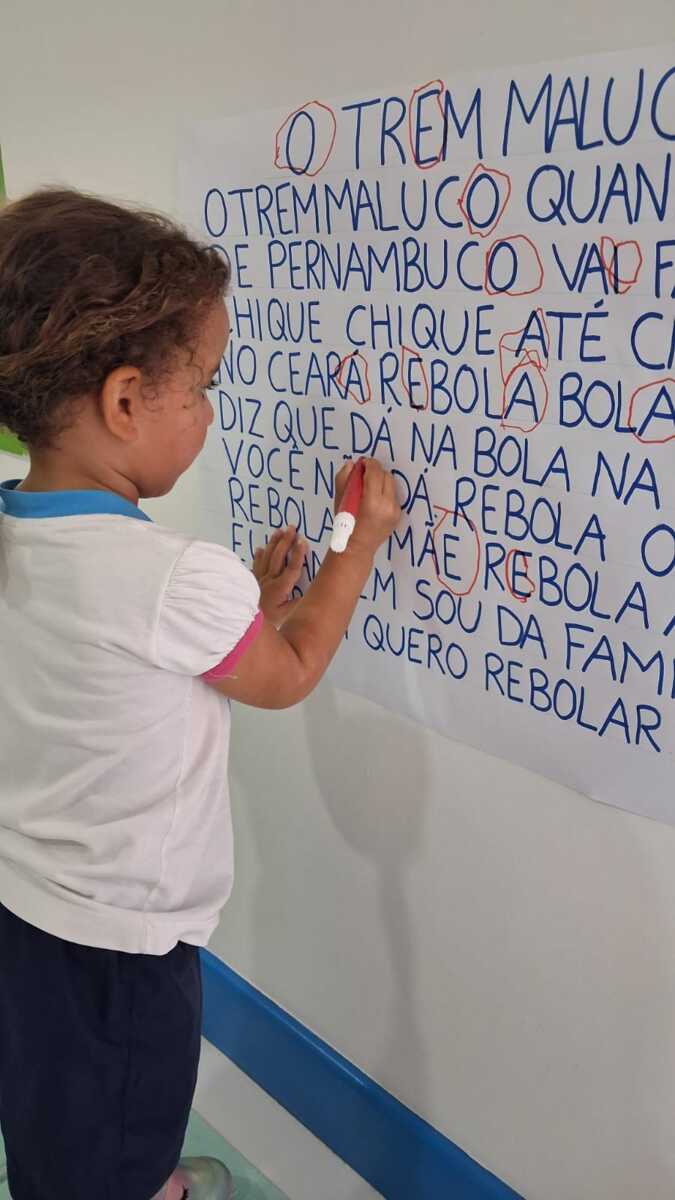 O TREM MALUC
O TREM MALUCO QUAN
DE PERNAMBUCO VAI FA
CHIQUE CHIQUE ATÉ C
NO CEARÁ REBOLA BOLA
DIZ QUE DÁ NA BOLA NA
VOCÊ DÁ. REBOLA O
REBOLA MÃE REBOLA A
SOU DA FAMI
QUERO REBOLAR